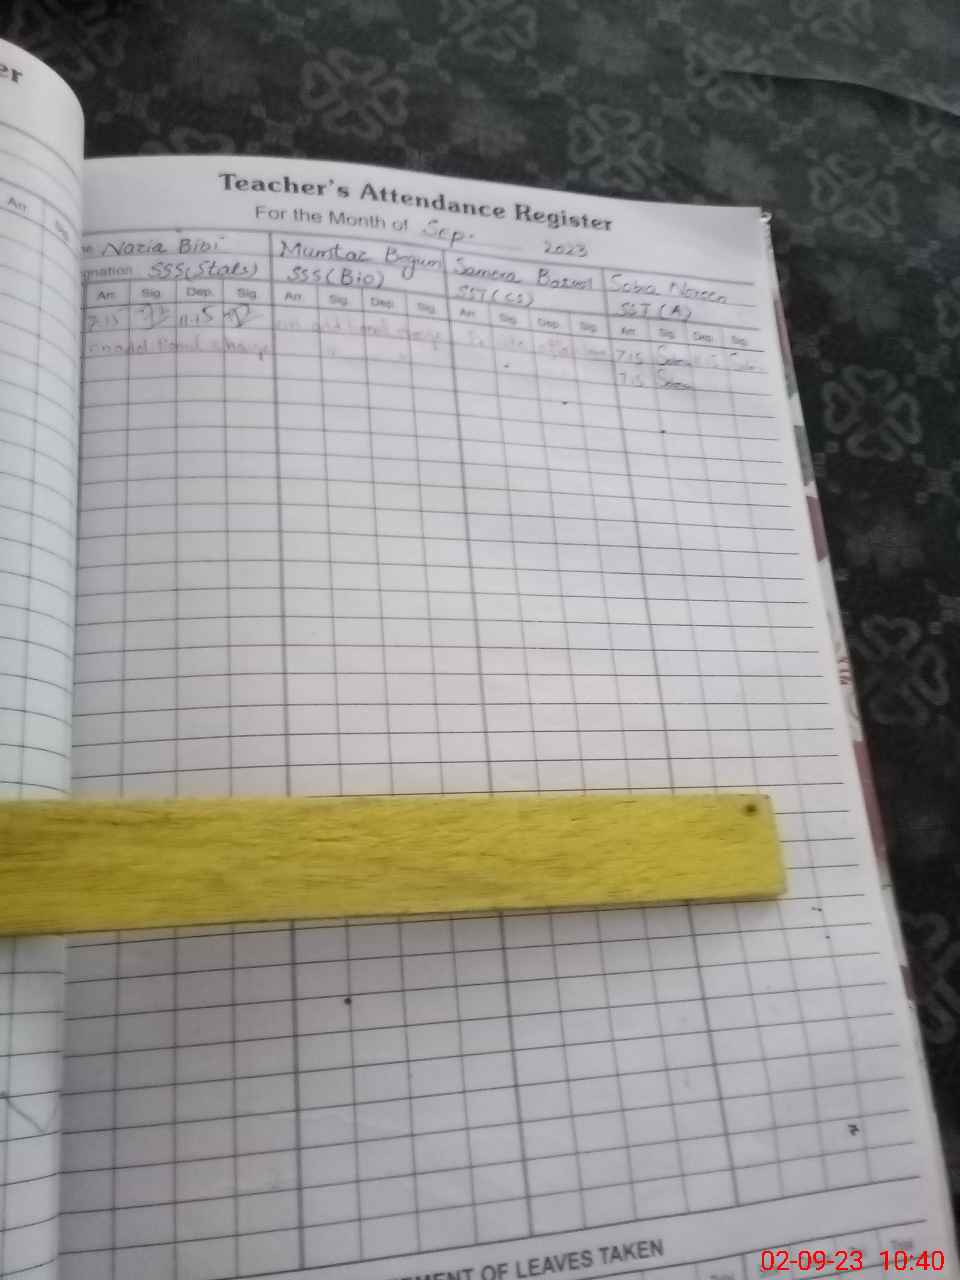 er
Teacher's Attendance Register
For the Month of Sep. 2023
Nazia Bibi Mumtaz Begum Samera Batool Sobia Noreen
gnation SSS(Stats) SSS(Bio) SST(CS) SST(A)
Arr. Sig Arr. Sig. Dep. Sig. Arr. Sig. Dep. Sig. Arr. Sig. Dep. Sig. Arr. Sig. Dep. Sig.
7:15 11:15 on additional charge 7:15
on additional charge " " 7:15
MENT OF LEAVES TAKEN
02-09-23 10:40